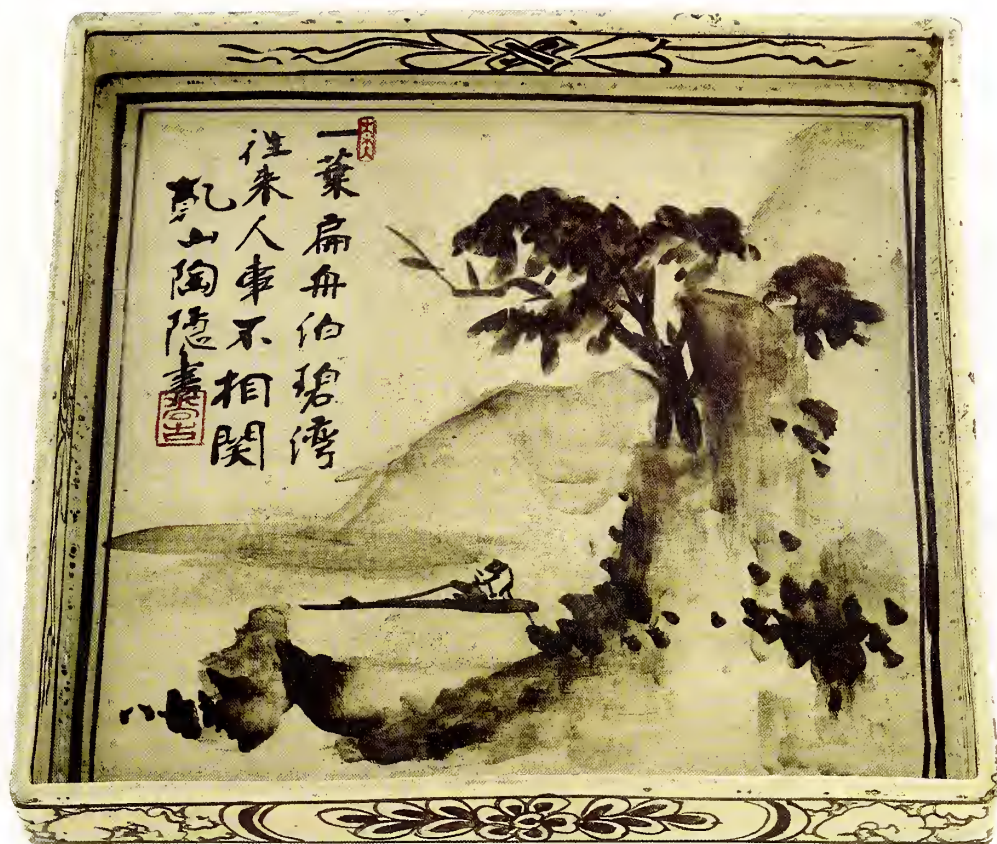 一葉扁舟泊碧湾
往来人事不相関
乾山陶隠書